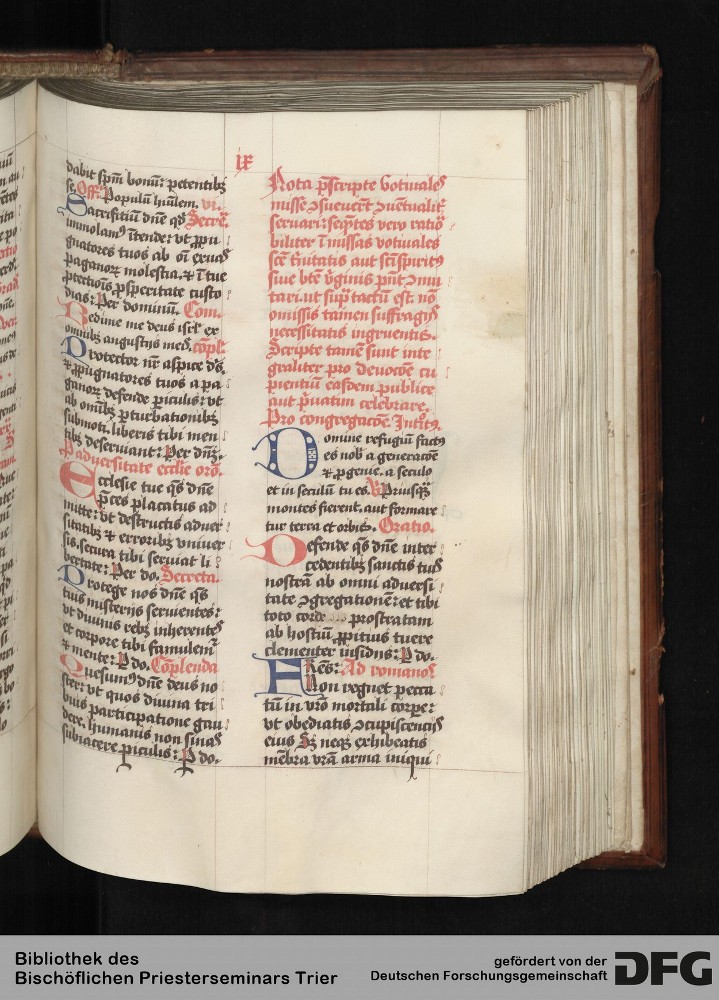 ix
dabit spm bonu: petentibꝫ
se. Off. Populu humlem. vt.
Sacrifitiu dne qs Secre.
immolamꝰ itende: vt ppu
gnatores tuos ab oi eruas
paganoꝝ molestia. ⁊ i tue
ptectiois psperitate custo
dias: Per dominu. Com.
Redime me deus isrl ex
omnibꝫ angustijs meis. copl.
Protector nr aspice ds.
⁊ ppugnatores tuos a pa
ganoꝝ defende piculis: vt
ab omibꝫ pturbationibꝫ
submoti. liberis tibi men
tibꝫ deseruiant: Per dnꝫ.
P aduersitate ecclie oro.
Ecclesie tue qs dne
pces placatus ad
mitte: vt destructis aduer
sitatibꝫ ⁊ erroribꝫ vniuer
sis. secura tibi seruiat li
bertate: Per do. Secreta.
Protege nos dne qs
tuis misterijs seruientes:
vt diuinis rebꝫ inherentes
et corpore tibi famulemꝰ
⁊ mente: P do. Coplenda
Quesumꝰ dne deus no
ster: vt quos diuina tri
buis participatione gau
dere. humanis non sinas
subiacere piculis: P do.
Nota pscripte votiuales
misse ɔsueuert ɔuetualit
seruari: seqtes vero ratio
biliter i missas votuales
sce trinitatis aut sci spirits
siue bte vginis pnt ɔmu
tari. ut supᵃ tactu est. no
omissis tamen suffragijs
necessitatis ingruentis.
Scripte tame sunt inte
graliter pro deuocoe cu
pientiu easdem publice
aut puatim celebrare.
Pro congregacoe. Introitꝰ.
Domine refugiu factꝰ
es nob a generacoe
⁊ pgenie. a seculo
et in seculu tu es. V Priusqꝫ
montes fierent. aut formare
tur terra et orbis. Oratio.
Defende qs dne inter
cedentibꝫ sanctis tuis
nostra ab omni aduersi
tate ɔgregatione: et tibi
toto corde prostratam
ab hostiu ppitius tuere
clementer insidijs: P do.
Fres: Ad romanos
Non regnet pecca
tu in vro mortali corpe:
vt obediatis ɔcupiscentijs
eius Sꝫ neqꝫ exhibeatis
mebra vra arma iniqui
Bibliothek des
Bischöflichen Priesterseminars Trier
gefördert von der
Deutschen Forschungsgemeinschaft
DFG